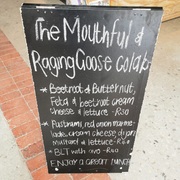 The Mouthful &
Raging Goose collab
* Beetroot & Butternut,
Feta & beetroot cream
cheese & lettuce - R100
* Pastrami, red onion marma-
lade, cream cheese, dijon
mustard & lettuce - R100
* BLT with avo - R100
ENJOY A GREAT LUNCH!